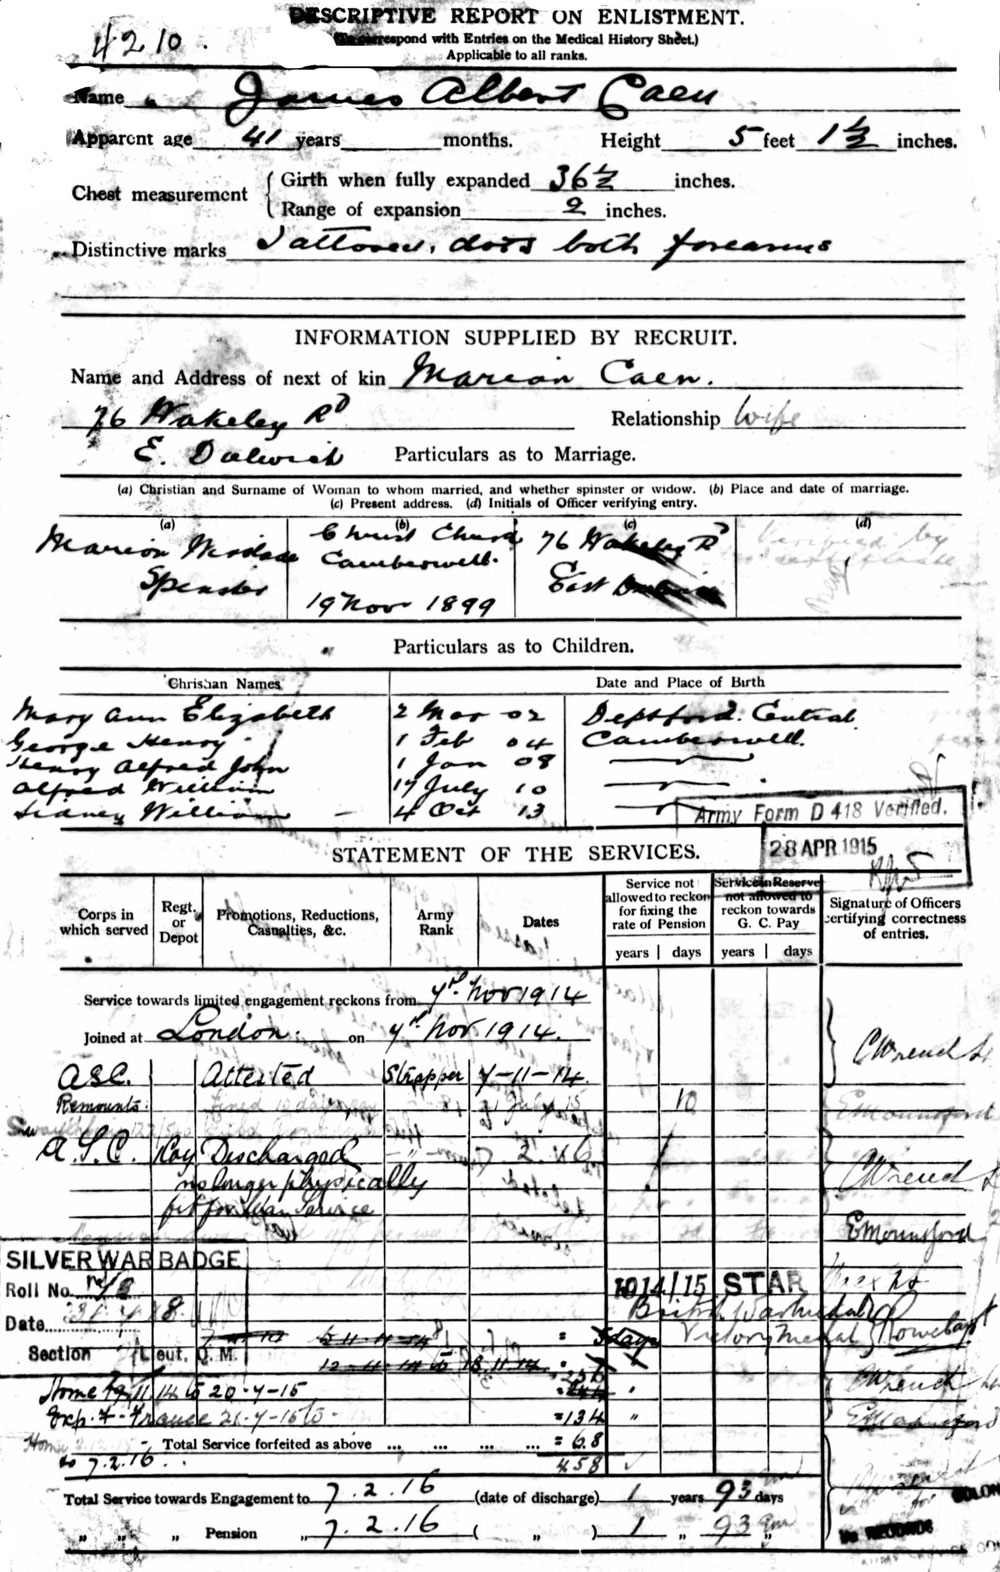 DESCRIPTIVE REPORT ON ENLISTMENT.
4210.
(To correspond with Entries on the Medical History Sheet.)
Applicable to all ranks.
Name James Albert Caen
Apparent age 41 years months. Height 5 feet 1½ inches.
Chest measurement { Girth when fully expanded 36½ inches.
Range of expansion 2 inches.
Distinctive marks Tattooed, dots both forearms
INFORMATION SUPPLIED BY RECRUIT.
Name and Address of next of kin Marion Caen.
76 Wakeley Rd Relationship Wife
E. Dulwich Particulars as to Marriage.
(a) Christian and Surname of Woman to whom married, and whether spinster or widow. (b) Place and date of marriage.
(c) Present address. (d) Initials of Officer verifying entry.
(a) (b) (c) (d)
Marion Christ Church 76 Wakeley Rd Verified by
Spinster Camberwell. East certificate
19 Nov 1899
Particulars as to Children.
Christian Names Date and Place of Birth
Mary Ann Elizabeth 2 Mar 02 Deptford. Central
George Henry 1 Feb 04 Camberwell.
Henry Alfred John 1 Jan 08
Alfred William 17 July 10
Sidney William 4 Oct 13
Army Form D 418 Verified.
28 APR 1915
STATEMENT OF THE SERVICES.
Corps in which served Regt. or Depot Promotions, Reductions, Casualties, &c. Army Rank Dates Service not allowed to reckon for fixing the rate of Pension Service in Reserve not allowed to reckon towards G. C. Pay Signature of Officers certifying correctness of entries.
years days years days
Service towards limited engagement reckons from 7th Nov 1914
Joined at London on 7th Nov 1914.
C Wrench Lt
A.S.C. Attested Strapper 7-11-14.
Remounts. fined 10 days pay July 15 10 E Mounsford
A.S.C. Discharged 7 2 16
no longer physically C Wrench
fit for War Service
E Mounsford
SILVER WAR BADGE
Roll No.
Date
Section Lieut. Q. M.
1914/15 STAR
British War Medal
Victory Medal
5 days
Home 14 to 20-7-15 C Wrench
Exp. F- France 21-7-15 to = 134 E Mounsford
Home Total Service forfeited as above ... ... ... ... = 68
to 7.2.16. 458
Total Service towards Engagement to 7.2.16 (date of discharge) 1 years 93 days
„ „ „ Pension „ 7.2.16 ( „ ) 1 „ 93 „
RECORDS